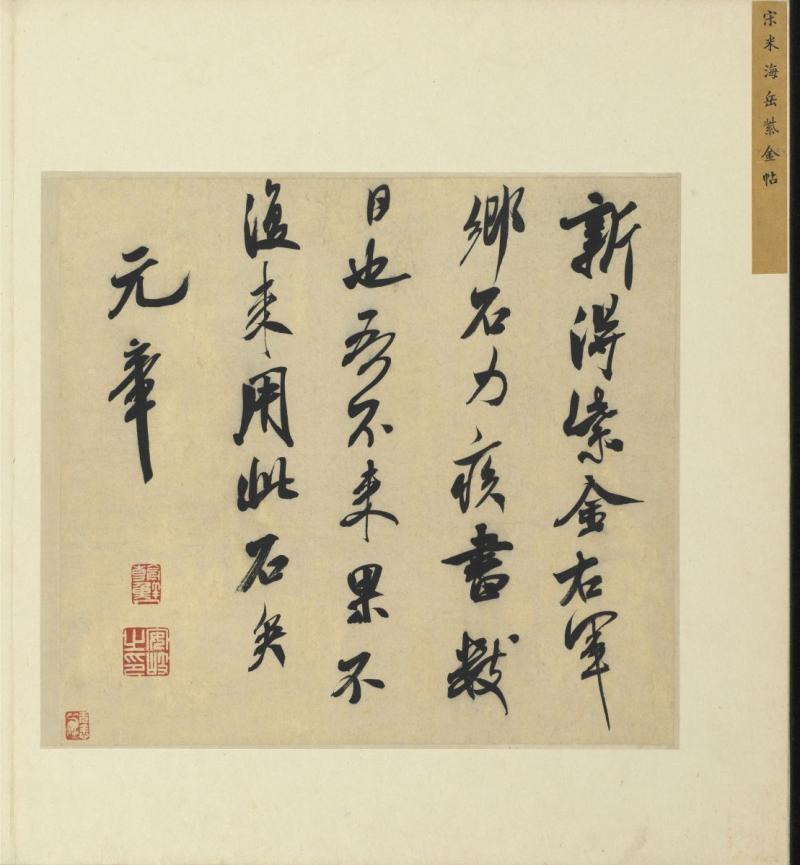 宋米海岳紫金帖
新得紫金右軍
鄉石力疾書數
日也吾不來果不
復來用此石矣
元章
安岐之印